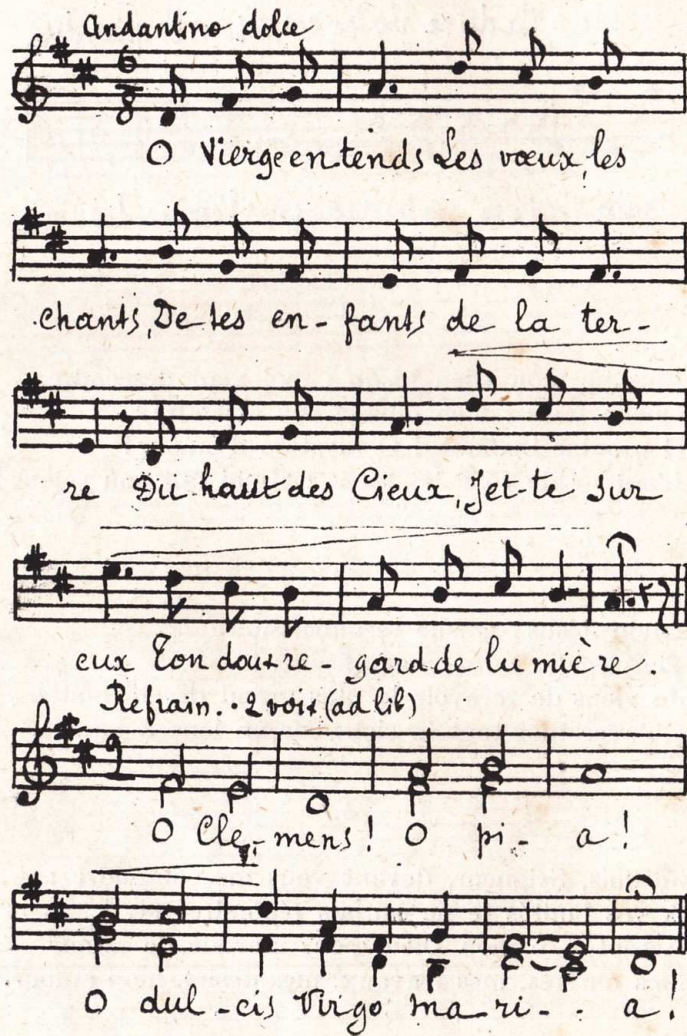 Andantino dolce
6
8
O Vierge entends Les vœux, les
chants, De tes en-fants de la ter-
re Du haut des Cieux, Jet-te Sur
eux Ton doux re-gard de lu mière.
Refrain.. 2 voix (ad lib)
2
O Cle-mens! O pi-a!
O dul-cis Virgo ma-ri--a!